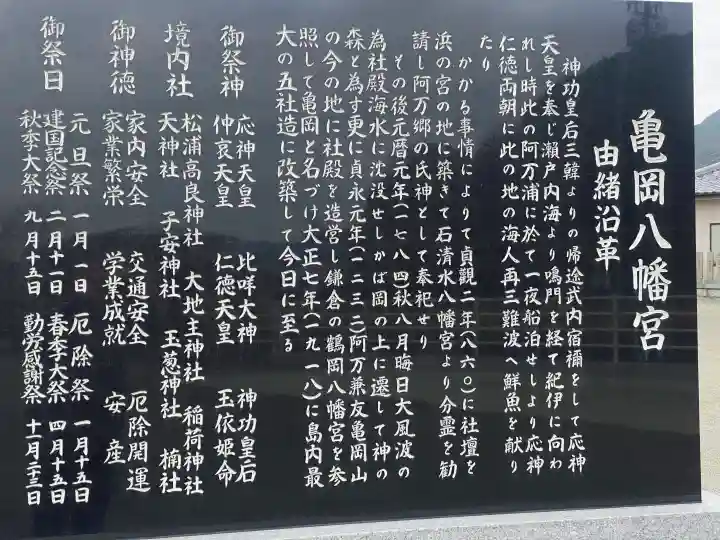 亀岡八幡宮
由緒沿革
神功皇后三韓よりの帰途武内宿禰をして応神
天皇を奉じ瀬戸内海より鳴門を経て紀伊に向わ
れし時此の阿万浦に於て一夜船泊せしより応神
仁徳両朝に此の地の海人再三難波へ鮮魚を献り
たり
かかる事情によりて貞観二年(八六〇)に社壇を
浜の宮の地に築きて石清水八幡宮より分霊を勧
請し阿万郷の氏神として奉祀せり
その後元暦元年(一七八四)秋八月晦日大風波の
為社殿海水に沈没せしかば岡の上に遷して神の
森と為す更に貞永元年(一二三二)阿万兼友亀岡山
の今の地に社殿を造営し鎌倉の鶴岡八幡宮を参
照して亀岡と名づけ大正七年(一九一八)に島内最
大の五社造に改築して今日に至る
御祭神 応神天皇 比咩大神 神功皇后
仲哀天皇 仁徳天皇 玉依姫命
境内社 松浦高良神社 大地主神社 稲荷神社
天神社 子安神社 玉葱神社 楠社
御神徳 家内安全 交通安全 厄除開運
家業繁栄 学業成就 安産
御祭日 元旦祭 一月一日 厄除祭 一月十五日
建国記念祭 二月十一日 春季大祭 四月十五日
秋季大祭 九月十五日 勤労感謝祭 十一月二十三日